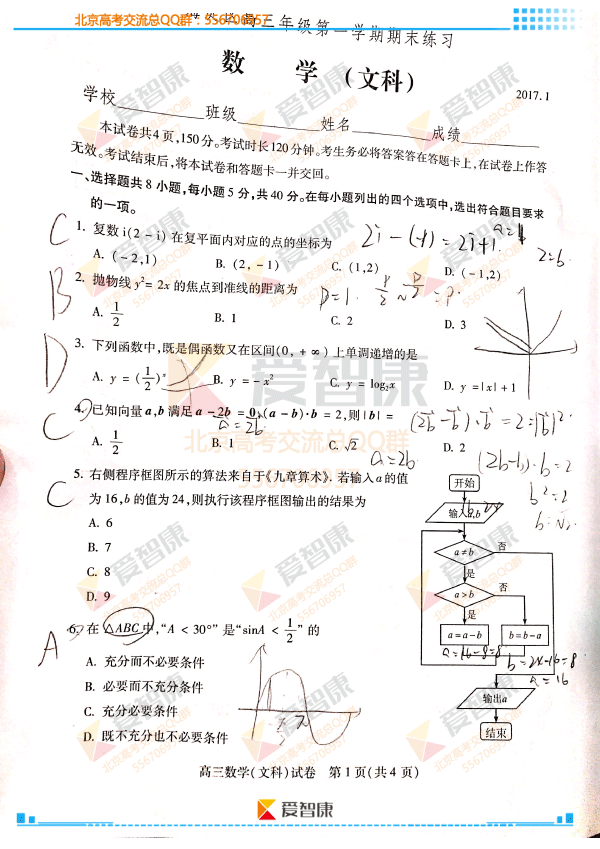 北京高考交流总QQ群：556706957
高三年级第一学期期末练习
数 学（文科）
2017.1
学校 班级 姓名 成绩
本试卷共4页,150分。考试时长120分钟。考生务必将答案答在答题卡上,在试卷上作答
无效。考试结束后,将本试卷和答题卡一并交回。
一、选择题共8小题,每小题5分,共40分。在每小题列出的四个选项中,选出符合题目要求
的一项。
C
1. 复数 i(2－i) 在复平面内对应的点的坐标为
2i－(-1)=2i+1
A. (－2,1) B. (2,－1) C. (1,2) D. (－1,2)
2=b
B
2. 抛物线 y²= 2x 的焦点到准线的距离为
P=1
A. 1/2 B. 1 C. 2 D. 3
D
3. 下列函数中,既是偶函数又在区间(0,+∞)上单调递增的是
A. y = (1/2)ˣ B. y =－x² C. y = log₂x D. y =|x|+1
C
4. 已知向量 a,b 满足 a－2b = 0,(a－b)·b = 2,则|b|=
a=2b
(2b-b)·b=2=|b|²
A. 1/2 B. 1 C. √2 D. 2
a=2b
(2b-b)·b=2
b²=2
b=√2
C
5. 右侧程序框图所示的算法来自于《九章算术》. 若输入 a 的值
为 16,b 的值为 24,则执行该程序框图输出的结果为
A. 6
B. 7
C. 8
D. 9
开始
输入a,b
a≠b
否
是
a>b
否
是
a=a-b
b=b-a
a=16-8=8
b=24-16=8
a=16
输出a
结束
A
6. 在 △ABC 中,“A < 30°”是“sinA < 1/2”的
A. 充分而不必要条件
B. 必要而不充分条件
C. 充分必要条件
D. 既不充分也不必要条件
高三数学(文科)试卷 第1页(共4页)
爱智康
爱智康
北京高考交流总QQ群
556706957